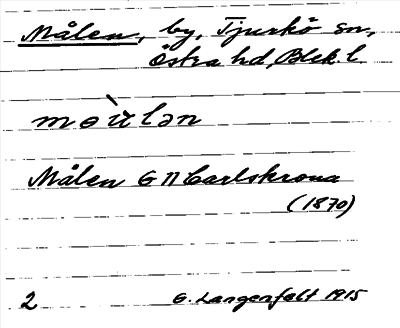 Målen, by, Tjurkö sn,
Östra hd, Blek. l.
məùlən
Målen G II Carlskrona
(1870)
2 G. Langenfelt 1915